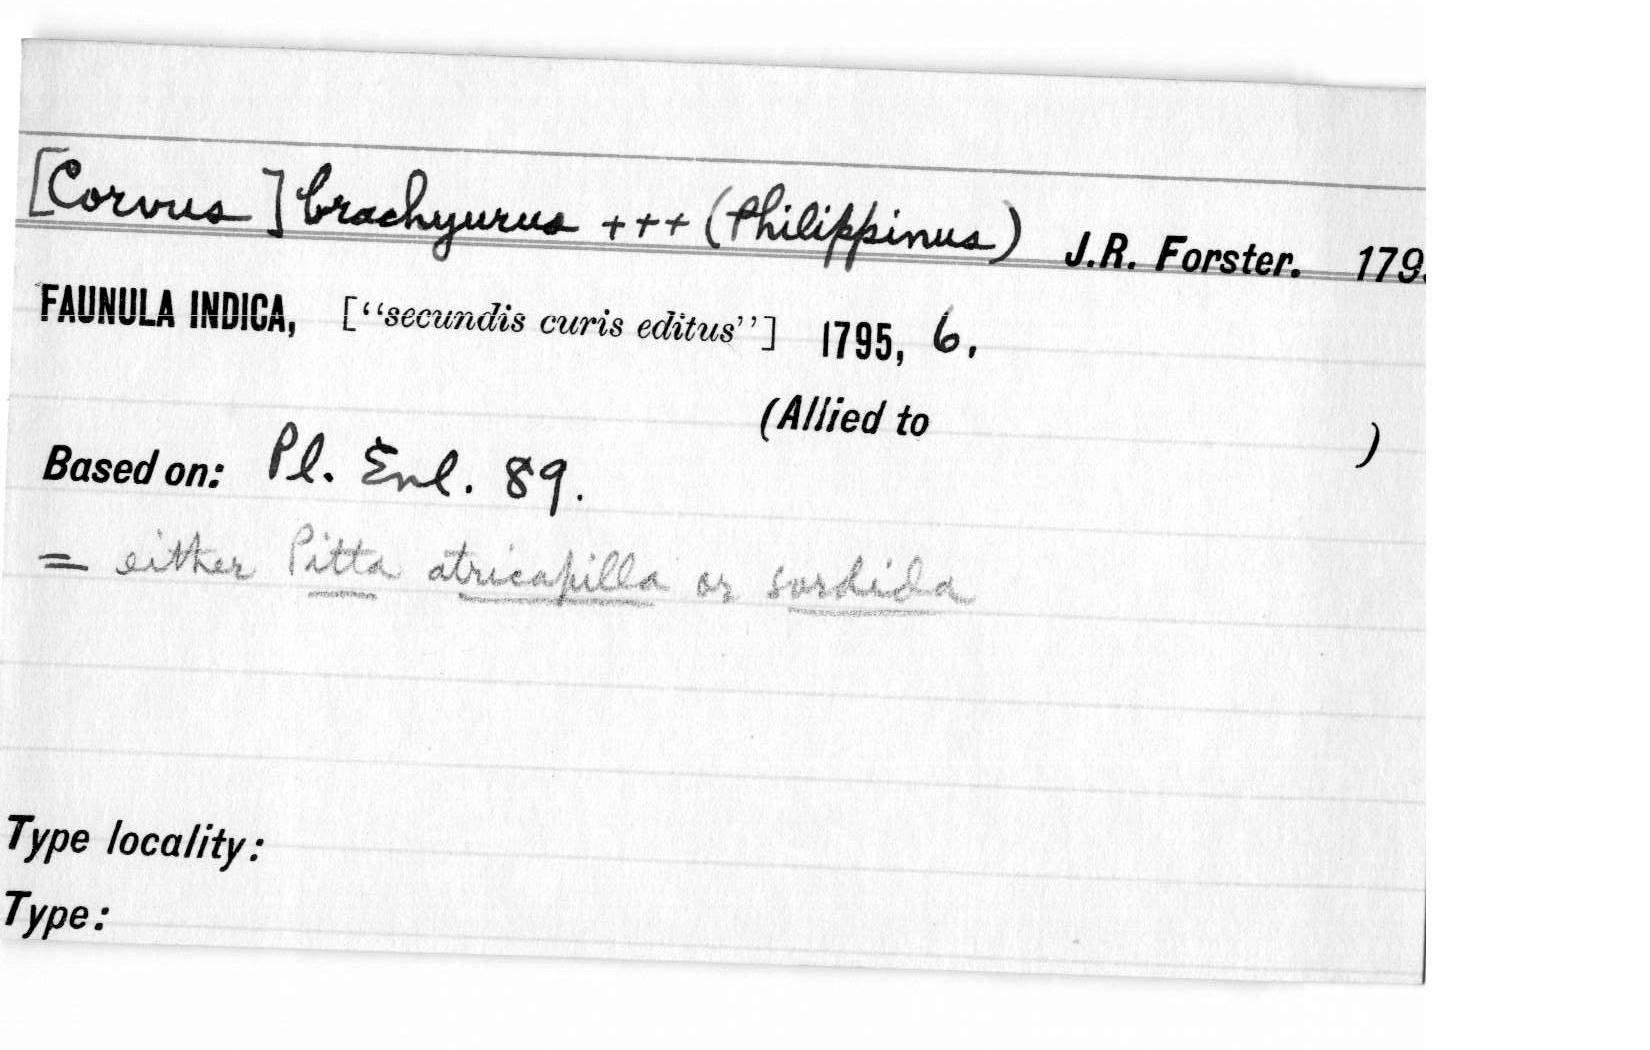 [Corvus] brachyurus +++ (Philippinus) J.R. Forster. 179
FAUNULA INDICA, ["secundis curis editus"] 1795, 6.
(Allied to )
Based on: Pl. Enl. 89.
= either Pitta atricapilla or sordida
Type locality:
Type: